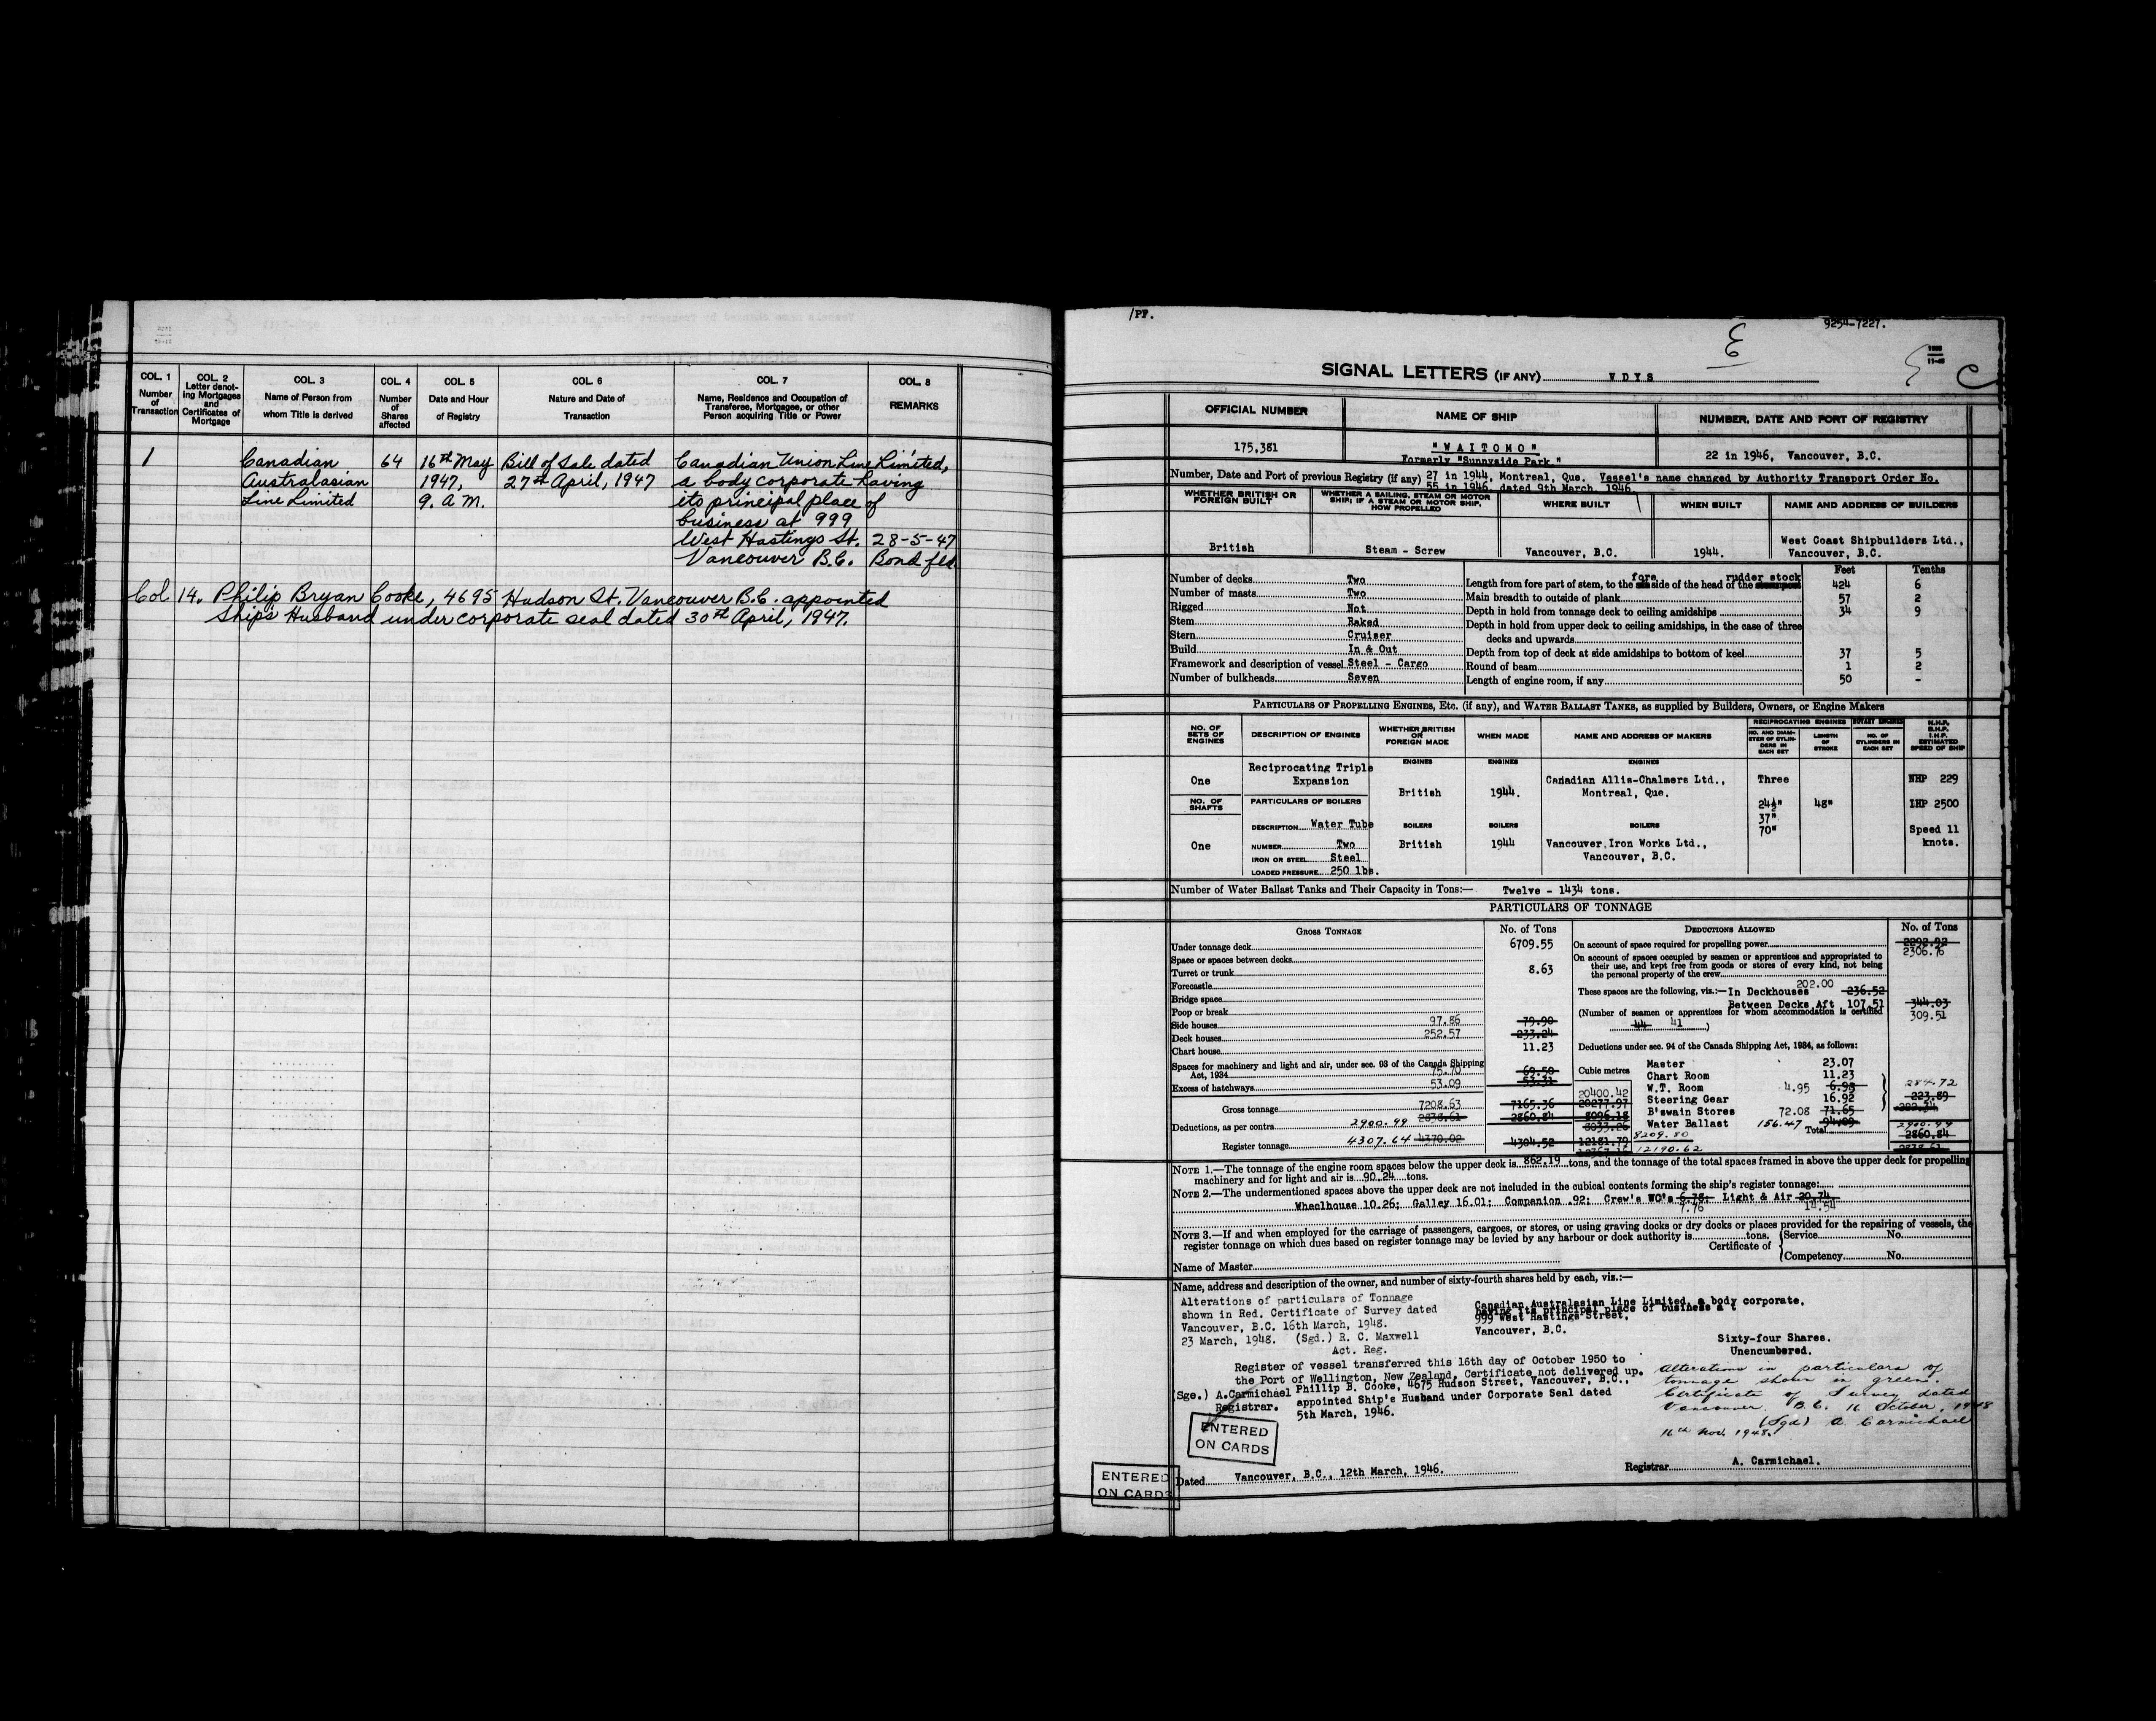 COL. 1 COL. 2 COL. 3 COL. 4 COL. 5 COL. 6 COL. 7 COL. 8
Number of Transaction
Letter denoting Mortgages and Certificates of Mortgage
Name of Person from whom Title is derived
Number of Shares affected
Date and Hour of Registry
Nature and Date of Transaction
Name, Residence and Occupation of Transferee, Mortgagee, or other Person acquiring Title or Power
REMARKS
1 Canadian 64 16th May Bill of Sale dated Canadian Union Line Limited,
Australasian 1947, 27th April, 1947 a body corporate having
Line Limited 9. A.M. its principal place of
business at 999
West Hastings St. 28-5-47
Vancouver B.C. Bond fld.
Col 14. Philip Bryan Cooke, 4695 Hudson St. Vancouver B.C. appointed
Ship's Husband under corporate seal dated 30th April, 1947.
/PF.
9254-7227.
E
C
SIGNAL LETTERS (IF ANY) V D Y S
OFFICIAL NUMBER NAME OF SHIP NUMBER, DATE AND PORT OF REGISTRY
175,381 "WAITOMO" 22 in 1946, Vancouver, B.C.
Formerly "Sunnyside Park"
Number, Date and Port of previous Registry (if any) 27 in 1944, Montreal, Que. Vessel's name changed by Authority Transport Order No.
55 in 1946, dated 9th March, 1946.
WHETHER BRITISH OR FOREIGN BUILT
WHETHER A SAILING, STEAM OR MOTOR SHIP; IF A STEAM OR MOTOR SHIP, HOW PROPELLED
WHERE BUILT WHEN BUILT NAME AND ADDRESS OF BUILDERS
British Steam - Screw Vancouver, B.C. 1944. West Coast Shipbuilders Ltd.,
Vancouver, B.C.
Feet Tenths
Number of decks Two
Number of masts Two
Rigged Not
Stem Raked
Stern Cruiser
Build In & Out
Framework and description of vessel Steel - Cargo
Number of bulkheads Seven
fore rudder stock
Length from fore part of stem, to the side of the head of the 424 6
Main breadth to outside of plank 57 2
Depth in hold from tonnage deck to ceiling amidships 34 9
Depth in hold from upper deck to ceiling amidships, in the case of three
decks and upwards
Depth from top of deck at side amidships to bottom of keel 37 5
Round of beam 1 2
Length of engine room, if any 50 -
PARTICULARS OF PROPELLING ENGINES, Etc. (if any), and WATER BALLAST TANKS, as supplied by Builders, Owners, or Engine Makers
NO. OF SETS OF ENGINES
DESCRIPTION OF ENGINES
WHETHER BRITISH OR FOREIGN MADE
WHEN MADE
NAME AND ADDRESS OF MAKERS
RECIPROCATING ENGINES ROTARY ENGINES
NO. AND DIAMETER OF CYLINDERS IN EACH SET
LENGTH OF STROKE
NO. OF CYLINDERS IN EACH SET
N.H.P. B.H.P. I.H.P. ESTIMATED SPEED OF SHIP
ENGINES ENGINES ENGINES
One Reciprocating Triple Expansion British 1944. Canadian Allis-Chalmers Ltd., Three NHP 229
Montreal, Que.
NO. OF SHAFTS
PARTICULARS OF BOILERS
24½" 48" IHP 2500
37"
70" Speed 11 knots.
DESCRIPTION Water Tube BOILERS BOILERS BOILERS
One NUMBER Two British 1944 Vancouver Iron Works Ltd.,
IRON OR STEEL Steel Vancouver, B.C.
LOADED PRESSURE 250 lbs.
Number of Water Ballast Tanks and Their Capacity in Tons:— Twelve - 1434 tons.
PARTICULARS OF TONNAGE
GROSS TONNAGE No. of Tons
Under tonnage deck 6709.55
Space or spaces between decks
Turret or trunk 8.63
Forecastle
Bridge space
Poop or break
Side houses 97.86 79.90
Deck houses 252.57 233.24
Chart house 11.23
Spaces for machinery and light and air, under sec. 93 of the Canada Shipping
Act, 1934 75.70 69.50
Excess of hatchways 53.09 53.31
Cubic metres
Gross tonnage 7208.63 7165.36 20400.42 20277.97
Deductions, as per contra 2900.99 2838.61 2860.84 8096.18
8033.26
Register tonnage 4307.64 4370.02 4304.52 12181.79 8209.80
12190.62
DEDUCTIONS ALLOWED No. of Tons
On account of space required for propelling power 2292.92
2306.76
On account of spaces occupied by seamen or apprentices and appropriated to
their use, and kept free from goods or stores of every kind, not being
the personal property of the crew
202.00
These spaces are the following, viz.:— In Deckhouses 236.52
Between Decks Aft 107.51 344.03
309.51
(Number of seamen or apprentices for whom accommodation is certified
44 41 )
Deductions under sec. 94 of the Canada Shipping Act, 1934, as follows:
Master 23.07
Chart Room 11.23
W.T. Room 4.95 6.95 284.72
Steering Gear 16.92 223.89
B'swain Stores 72.08 71.65
Water Ballast 156.47 94.09
Total 2900.99
2860.84
2838.61
NOTE 1.—The tonnage of the engine room spaces below the upper deck is 862.19 tons, and the tonnage of the total spaces framed in above the upper deck for propelling
machinery and for light and air is 90.24 tons.
NOTE 2.—The undermentioned spaces above the upper deck are not included in the cubical contents forming the ship's register tonnage:
Whaelhouse 10.26; Galley 16.01; Companion .92; Crew's WC's 6.78; Light & Air 20.74.
7.76 14.54
NOTE 3.—If and when employed for the carriage of passengers, cargoes, or stores, or using graving docks or dry docks or places provided for the repairing of vessels, the
register tonnage on which dues based on register tonnage may be levied by any harbour or dock authority is tons.
Certificate of Service No.
Competency No.
Name of Master
Name, address and description of the owner, and number of sixty-fourth shares held by each, viz.:—
Alterations of particulars of Tonnage
shown in Red. Certificate of Survey dated
Vancouver, B.C. 16th March, 1948.
23 March, 1948. (Sgd.) R. C. Maxwell
Act. Reg.
Canadian Australasian Line Limited, a body corporate,
having its principal place of business a t
999 West Hastings Street,
Vancouver, B.C.
Sixty-four Shares.
Unencumbered.
Register of vessel transferred this 16th day of October 1950 to
the Port of Wellington, New Zealand. Certificate not delivered up.
(Sge.) A.Carmichael
Registrar.
Phillip B. Cooke, 4675 Hudson Street, Vancouver, B.C.,
appointed Ship's Husband under Corporate Seal dated
5th March, 1946.
Alterations in particulars of
tonnage shown in green.
Certificate of Survey dated
Vancouver. B.C. 16 October, 1948
(Sgd) A. Carmichael
16th Nov. 1948.
ENTERED
ON CARDS
ENTERED
ON CARDS
Dated Vancouver, B.C., 12th March, 1946.
Registrar A. Carmichael.